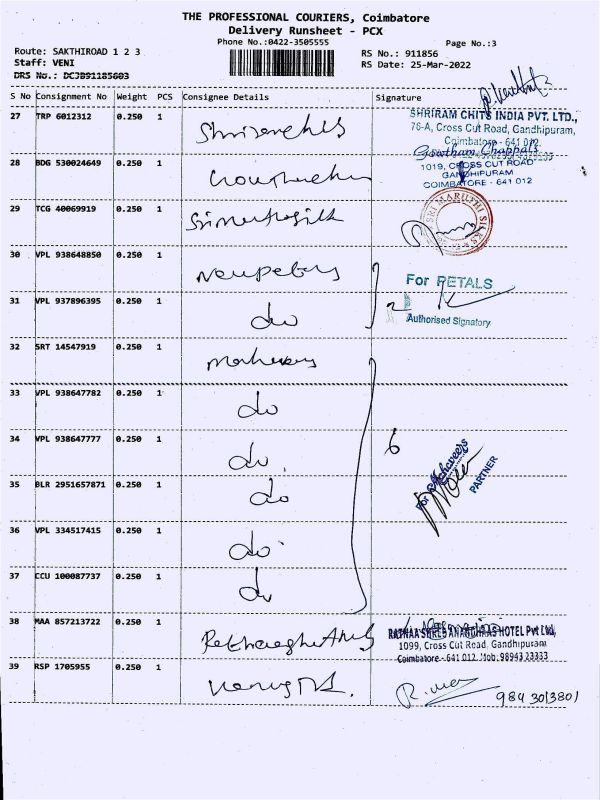 THE PROFESSIONAL COURIERS, Coimbatore
Delivery Runsheet - PCX
Phone No.:0422-3505555
Page No.:3
Route: SAKTHIROAD 1 2 3
RS No.: 911856
Staff: VENI
RS Date: 25-Mar-2022
DRS No.: DCJB91185603
S No Consignment No Weight PCS Consignee Details Signature
27 TRP 6012312 0.250 1
SHRIRAM CHITS INDIA PVT. LTD.,
76-A, Cross Cut Road, Gandhipuram,
Coimbatore - 641 012.
28 BDG 530024649 0.250 1
Gowtham Chappals
1019, CROSS CUT ROAD
GANDHIPURAM
COIMBATORE - 641 012
29 TCG 40069919 0.250 1
SRI MARUTHI SILKS
30 VPL 938648850 0.250 1
For PETALS
31 VPL 937896395 0.250 1 do 2
Authorised Signatory
32 SRT 14547919 0.250 1
33 VPL 938647782 0.250 1 do
34 VPL 938647777 0.250 1 do 6
For Mahaveers
PARTNER
35 BLR 2951657871 0.250 1 do
36 VPL 334517415 0.250 1 do
37 CCU 100087737 0.250 1 do
38 MAA 857213722 0.250 1
HOTEL Pvt Ltd,
1099, Cross Cut Road, Gandhipuram
Coimbatore - 641 012. Mob: 98943 23333
39 RSP 1705955 0.250 1
984 3013801